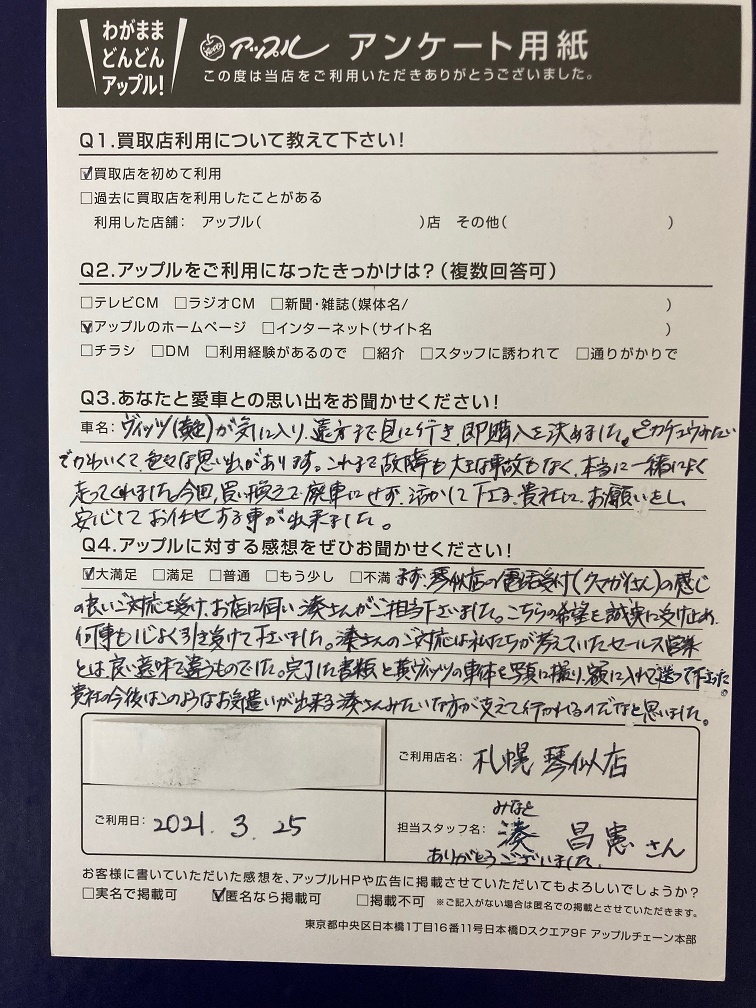 わがまま
どんどん
アップル!
アップル アンケート用紙
この度は当店をご利用いただきありがとうございました。
Q1.買取店利用について教えて下さい!
☑買取店を初めて利用
□過去に買取店を利用したことがある
利用した店舗: アップル( )店 その他( )
Q2.アップルをご利用になったきっかけは?(複数回答可)
□テレビCM □ラジオCM □新聞・雑誌(媒体名/ )
☑アップルのホームページ □インターネット(サイト名 )
□チラシ □DM □利用経験があるので □紹介 □スタッフに誘われて □通りがかりで
Q3.あなたと愛車との思い出をお聞かせください!
車名: ヴィッツ(黄色)が気に入り、遠方まで見に行き、即購入を決めました。ピカチュウみたい
でかわいくて、色々な思い出があります。これまで故障も大きな事故もなく、本当に一緒によく
走ってくれました。今回、買い換えで廃車にせず、活かして下さる、貴社に、お願いをし、
安心してお任せする事が出来ました。
Q4.アップルに対する感想をぜひお聞かせください!
☑大満足 □満足 □普通 □もう少し □不満 まず、琴似店の電話受付(クマガイさん)の感じ
の良いご対応を受け、お店に伺い湊さんがご担当下さいました。こちらの希望を誠実に受け止め、
何事も心よく引き受けて下さいました。湊さんのご対応は私たちが考えていたセールス営業
とは、良い意味で違うものでした。完了した書類と黄ヴィッツの車体を写真に撮り、額に入れて送って下さった。
貴社の今後はこのようなお気遣いが出来る湊さんみたいな方が支えて行かれるのだなと思いました。
ご利用店名: 札幌 琴似店
ご利用日: 2021. 3. 25
みなと
担当スタッフ名: 湊 昌憲 さん
ありがとうございました。
お客様に書いていただいた感想を、アップルHPや広告に掲載させていただいてもよろしいでしょうか?
□実名で掲載可 ☑匿名なら掲載可 □掲載不可 ※ご記入がない場合は匿名での掲載とさせていただきます。
東京都中央区日本橋1丁目16番11号日本橋Dスクエア9F アップルチェーン本部